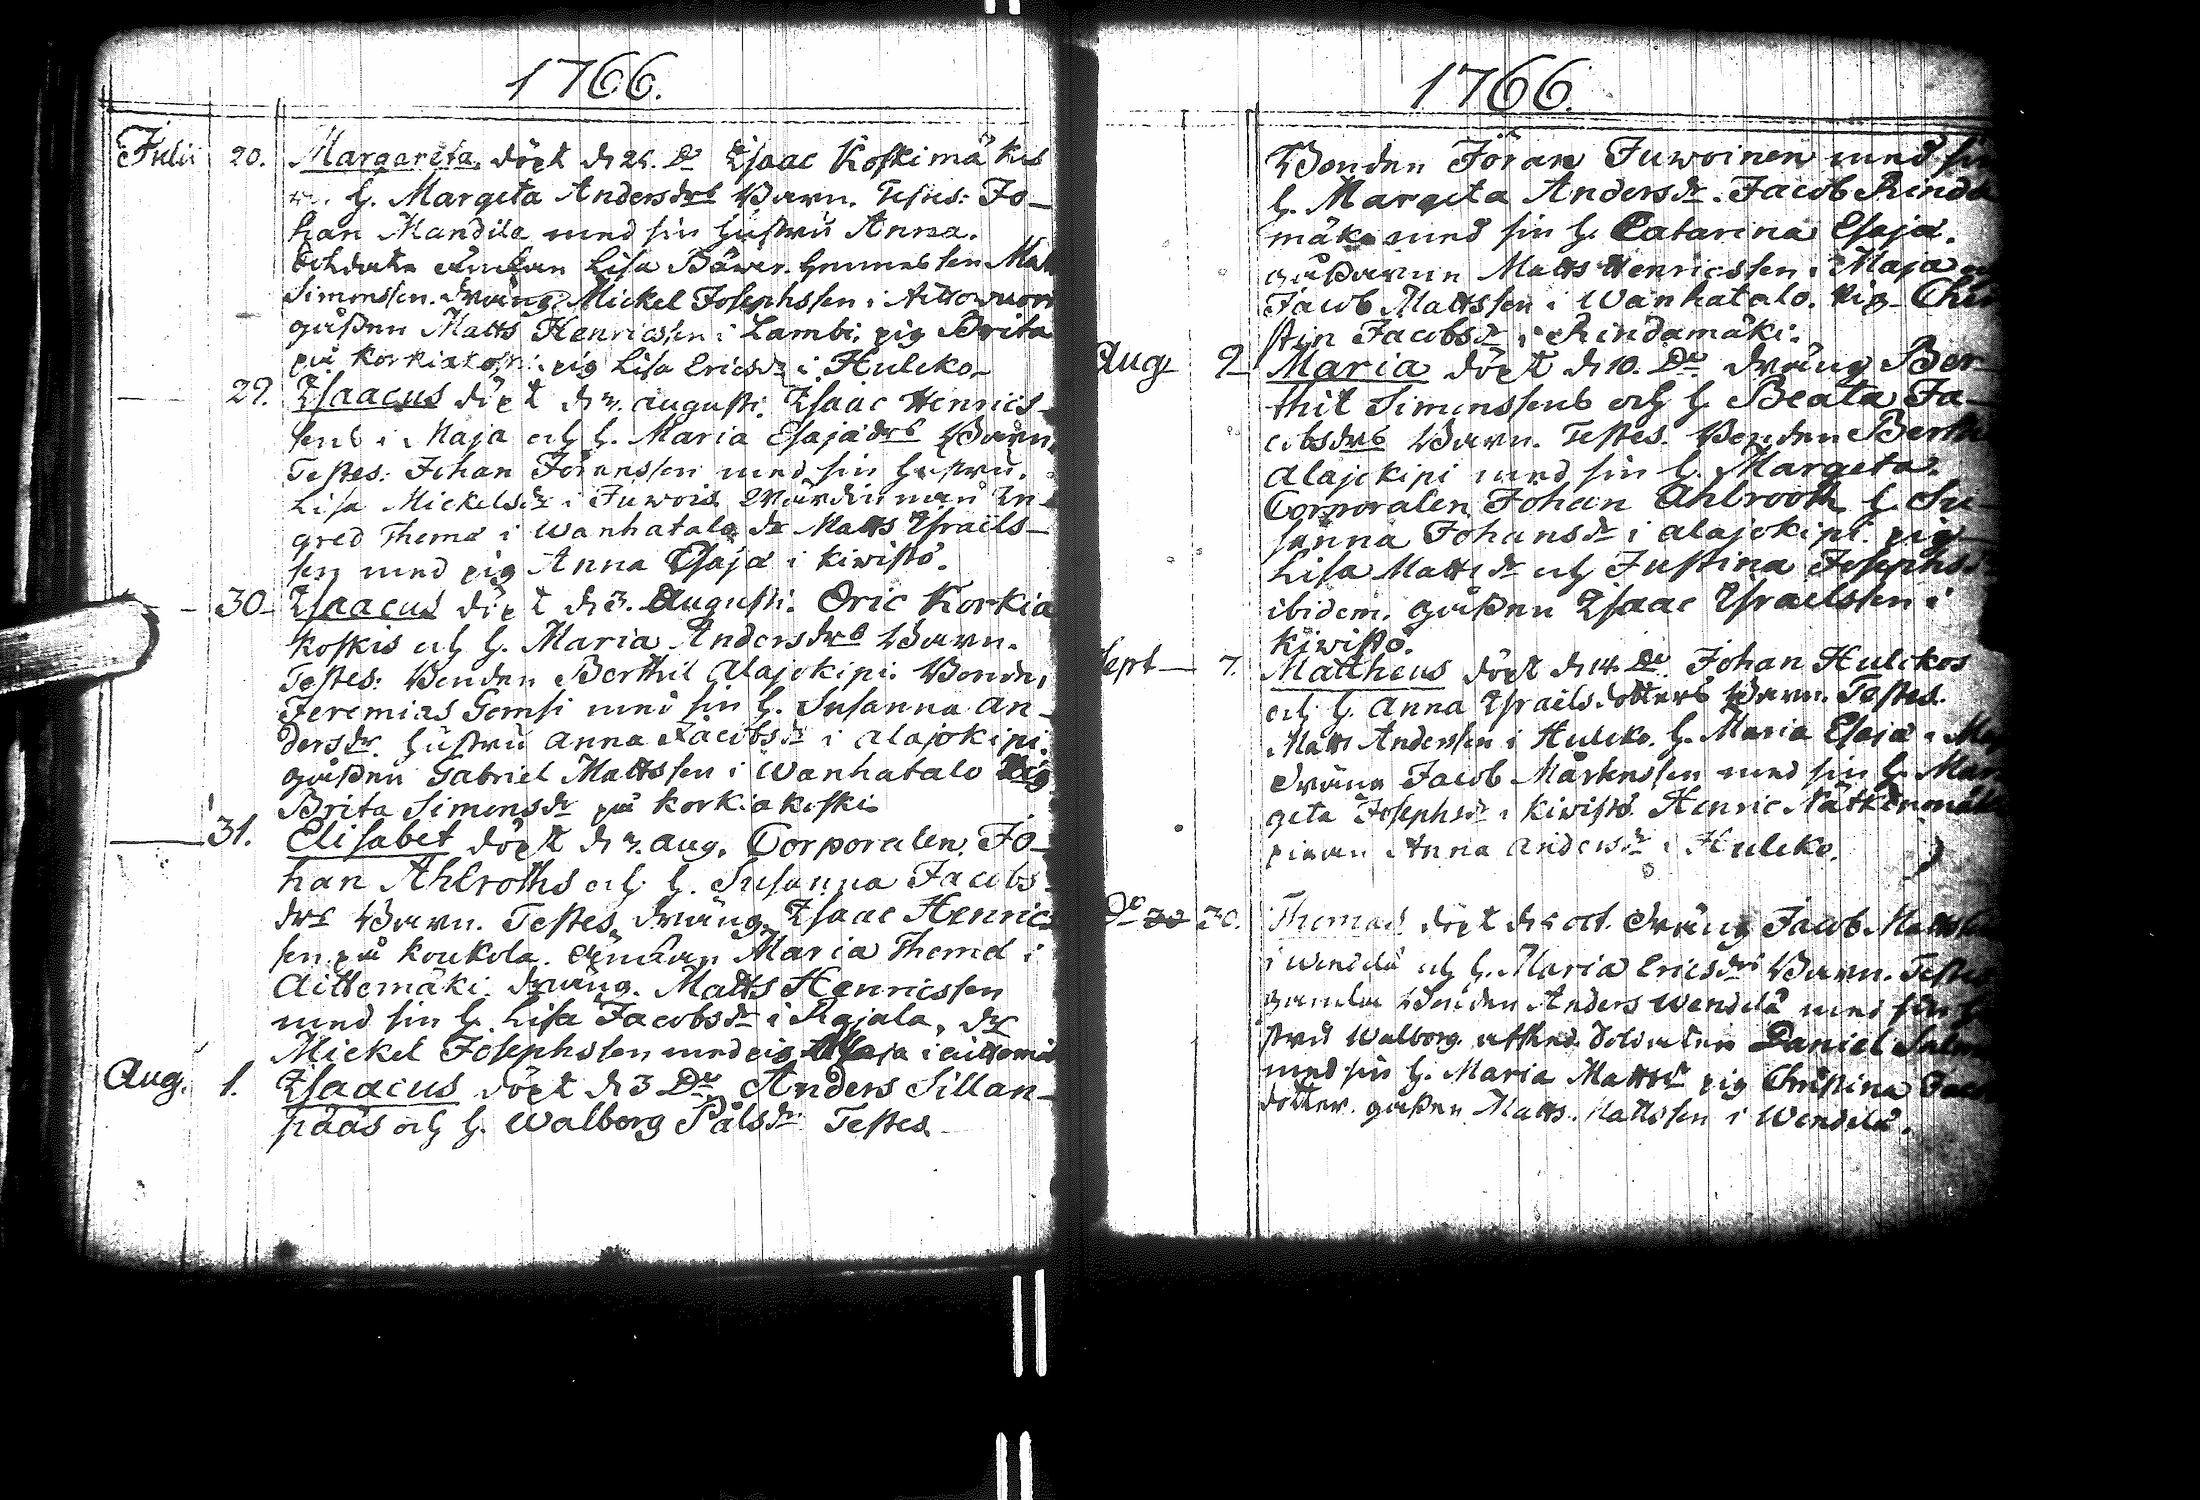 1766.
Julii 20. Margareta, döpt d. 25. Do Isaac Koskimäkis
H. Margeta Andersdrs Barn. Testes: Jo-
han Mandila med sin hustru Anna.
Enkan Lisa
Simonssen. dräng Mickel Josephssen i
gåssen Matts Henricssen i Lambi, pig Brita
på Korkiakoski. pig Lisa Ericsdr i Hulcko
29. Isaacus döpt d. 3. augusti. Isaac Henrics-
sens i Maja och h. Maria Esajædrs Barn.
Testes: Johan Jöranssen med sin hustru.
Lisa Mickelsdr i Juwois. In-
gred Thomæ i Wanhatalo dr Matts Israëls-
sen med pig Anna Esajæ i Kiwistö.
30 Isaacus döpt d. 3. Augusti. Eric Korkia
koskis och h. Maria Andersdrs Barn.
Testes: Bonden Berthil Alajokipi. Bonden
Jeremias Gomsi med sin h. Susanna An-
dersdr. hustru Anna Jacobsdr i Alajokipi.
gåssen Gabriel Mattssen i Wanhatalo Pig
Brita Simonsdr på Korkiakoski
31. Elisabet döpt d. 3. Aug. Corporalen Jo-
han Ahlroths och h. Susanna Jacobs
drs Barn. Testes, dräng Isaac Henric-
sen på Koukola. Enkan Maria Thomæ i
Aittomäki. dräng. Matts Henricssen
med sin h. Lisa Jacobsdr i Rajala, dr
Mickel Josephssen med pig
Aug. 1. Isaacus döpt d. 3 Do Anders Sillan-
pääs och h. Walborg Pålsdr Testes
1766.
Bonden Jöran Juwoinen med sin
h. Margeta Andersdr. Jacob Rinda
mäki med sin h. Catarina Esajæ.
gåssarne Matts Henricssen i Maja
Jacob Mattssen i Wanhatalo. Pig
stin Jacobsdr i Rindamäki.
Aug 9 Maria döpt d. 10. Do dräng Ber-
thil Simonssens och h. Beata Ja-
cobsdrs Barn. Testes. Bonden
Alajokipi med sin h. Margeta.
Corporalen Johan Ahlrooth h. Su-
sanna Johansdr i Alajokipi. pig
Lisa Mattsdr och Justina Josephs
ibidem. gåssen Isaac Israelssen i
Kiwistö.
Sept 7. Mattheus döpt d. 14. Do Johan Hulckos
och h. Anna Israels dotters Barn. Testes.
Matts Anderssen i Hulcko. h. Maria Esajæ i
dräng Jacob Mårtenssen med sin h. Mar
geta Josephsdr i Kiwistö. Henric
pigan Anna Andersdr i Hulcko.
Do 30 30. Thomas döpt d. 5 oct. dräng Jacob
i Wendelä och h. Maria Ericsdrs Barn. Testes
gamla Bonden Anders Wendelä med sin
stru Walborg. afsked. Soldaten Daniel
med sin h. Maria Mattsdr pig Christina
dotter. gåssen Matts Mattssen i Wendelä.